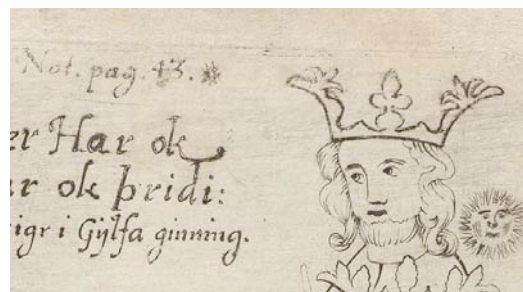 Not. pag. 43. *
er Har ok
ar ok þridi:
igr i Gÿlfa ginning.